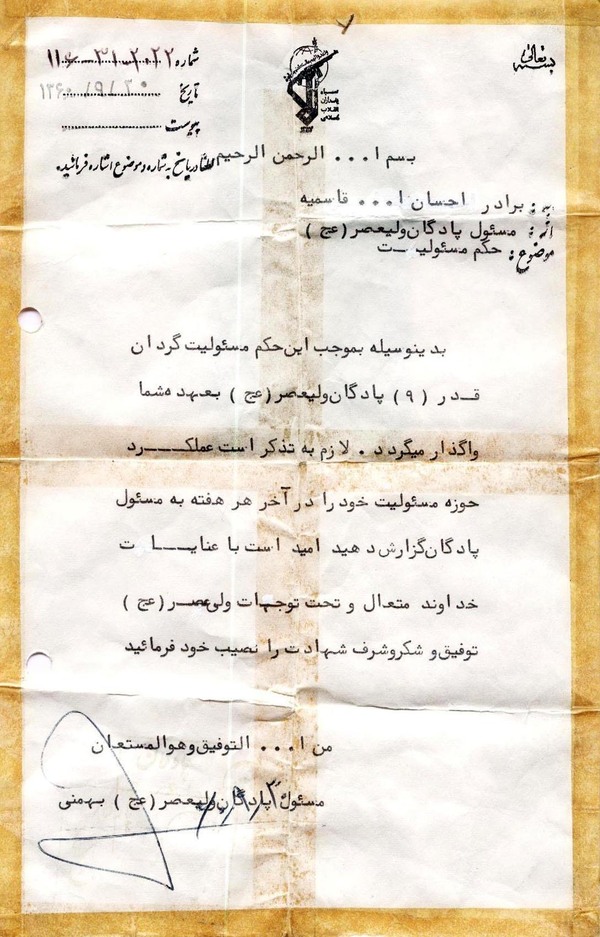 بسمه تعالی
شماره ۱۱۶-۳۱-۲۰۲۲
تاریخ ۱۳۶۰/۹/۳۰
پیوست
لطفاً در پاسخ به شماره و موضوع اشاره فرمائید.
سپاه
پاسداران
انقلاب
اسلامی
بسم ا... الرحمن الرحیم
به: برادر احسان ا... قاسمیه
از: مسئول پادگان ولیعصر (عج)
موضوع: حکم مسئولیت
بدینوسیله بموجب این حکم مسئولیت گردان
قدر (۹) پادگان ولیعصر (عج) بعهده شما
واگذار میگردد. لازم به تذکر است عملکرد
حوزه مسئولیت خود را در آخر هر هفته به مسئول
پادگان گزارش دهید امید است با عنایات
خداوند متعال و تحت توجهات ولیعصر (عج)
توفیق و شکر و شرف شهادت را نصیب خود فرمائید
من ا... التوفیق و هو المستعان
مسئول پادگان ولیعصر (عج) بهمنی